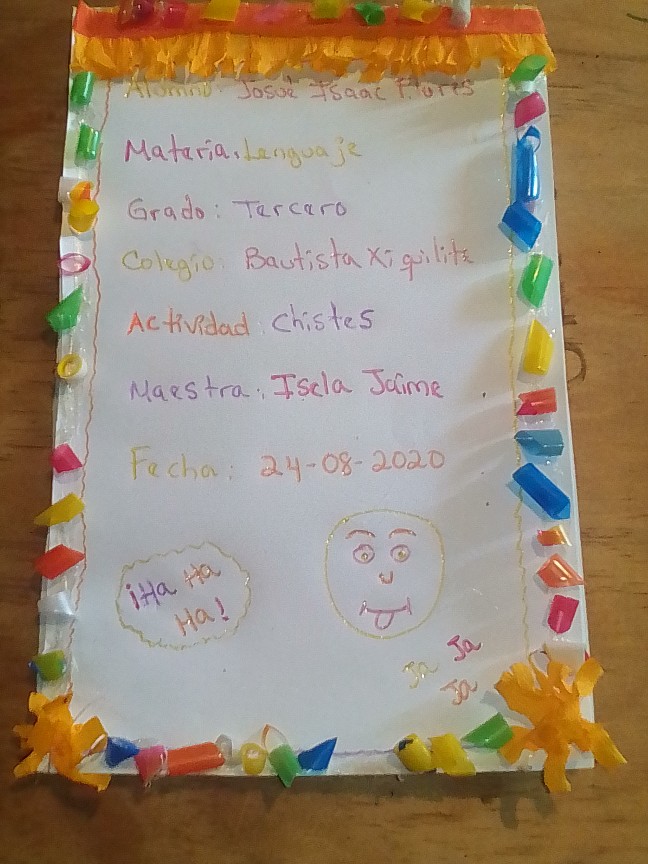 Alumno: Josué Isaac Flores
Materia: Lenguaje
Grado: Tercero
Colegio: Bautista Xiquilite
Actividad: Chistes
Maestra: Isela Jaime
Fecha: 24-08-2020
¡Ha Ha
Ha!
Ja Ja
Ja